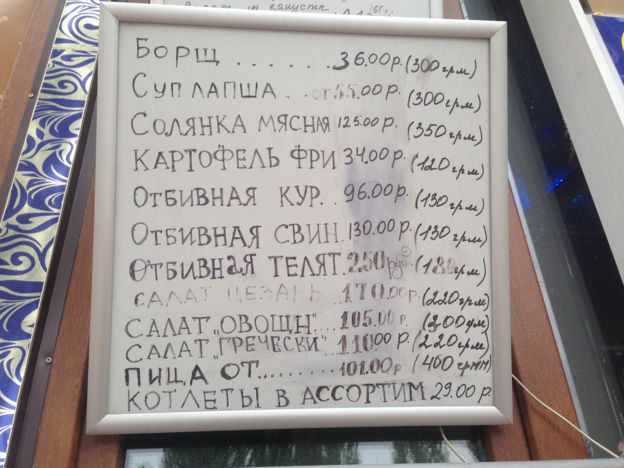 БОРЩ ....... 36.00р. (300грм)
СУП ЛАПША .. от 55.00р. (300грм)
СОЛЯНКА МЯСНАЯ 125.00р. (350грм)
КАРТОФЕЛЬ ФРИ 34.00р. (120грм)
ОТБИВНАЯ КУР.. 96.00р. (130грм)
ОТБИВНАЯ СВИН. 130.00р. (130грм)
ОТБИВНАЯ ТЕЛЯТ. 250 (180грм)
САЛАТ ЦЕЗАРЬ 170.00р. (220грм)
САЛАТ „ОВОЩН“... 105.00р.
САЛАТ „ГРЕЧЕСКИ“ 11000р. (220грм)
ПИЦА ОТ......... 101.00р (400грмм)
КОТЛЕТЫ В АССОРТИМ 29.00р.